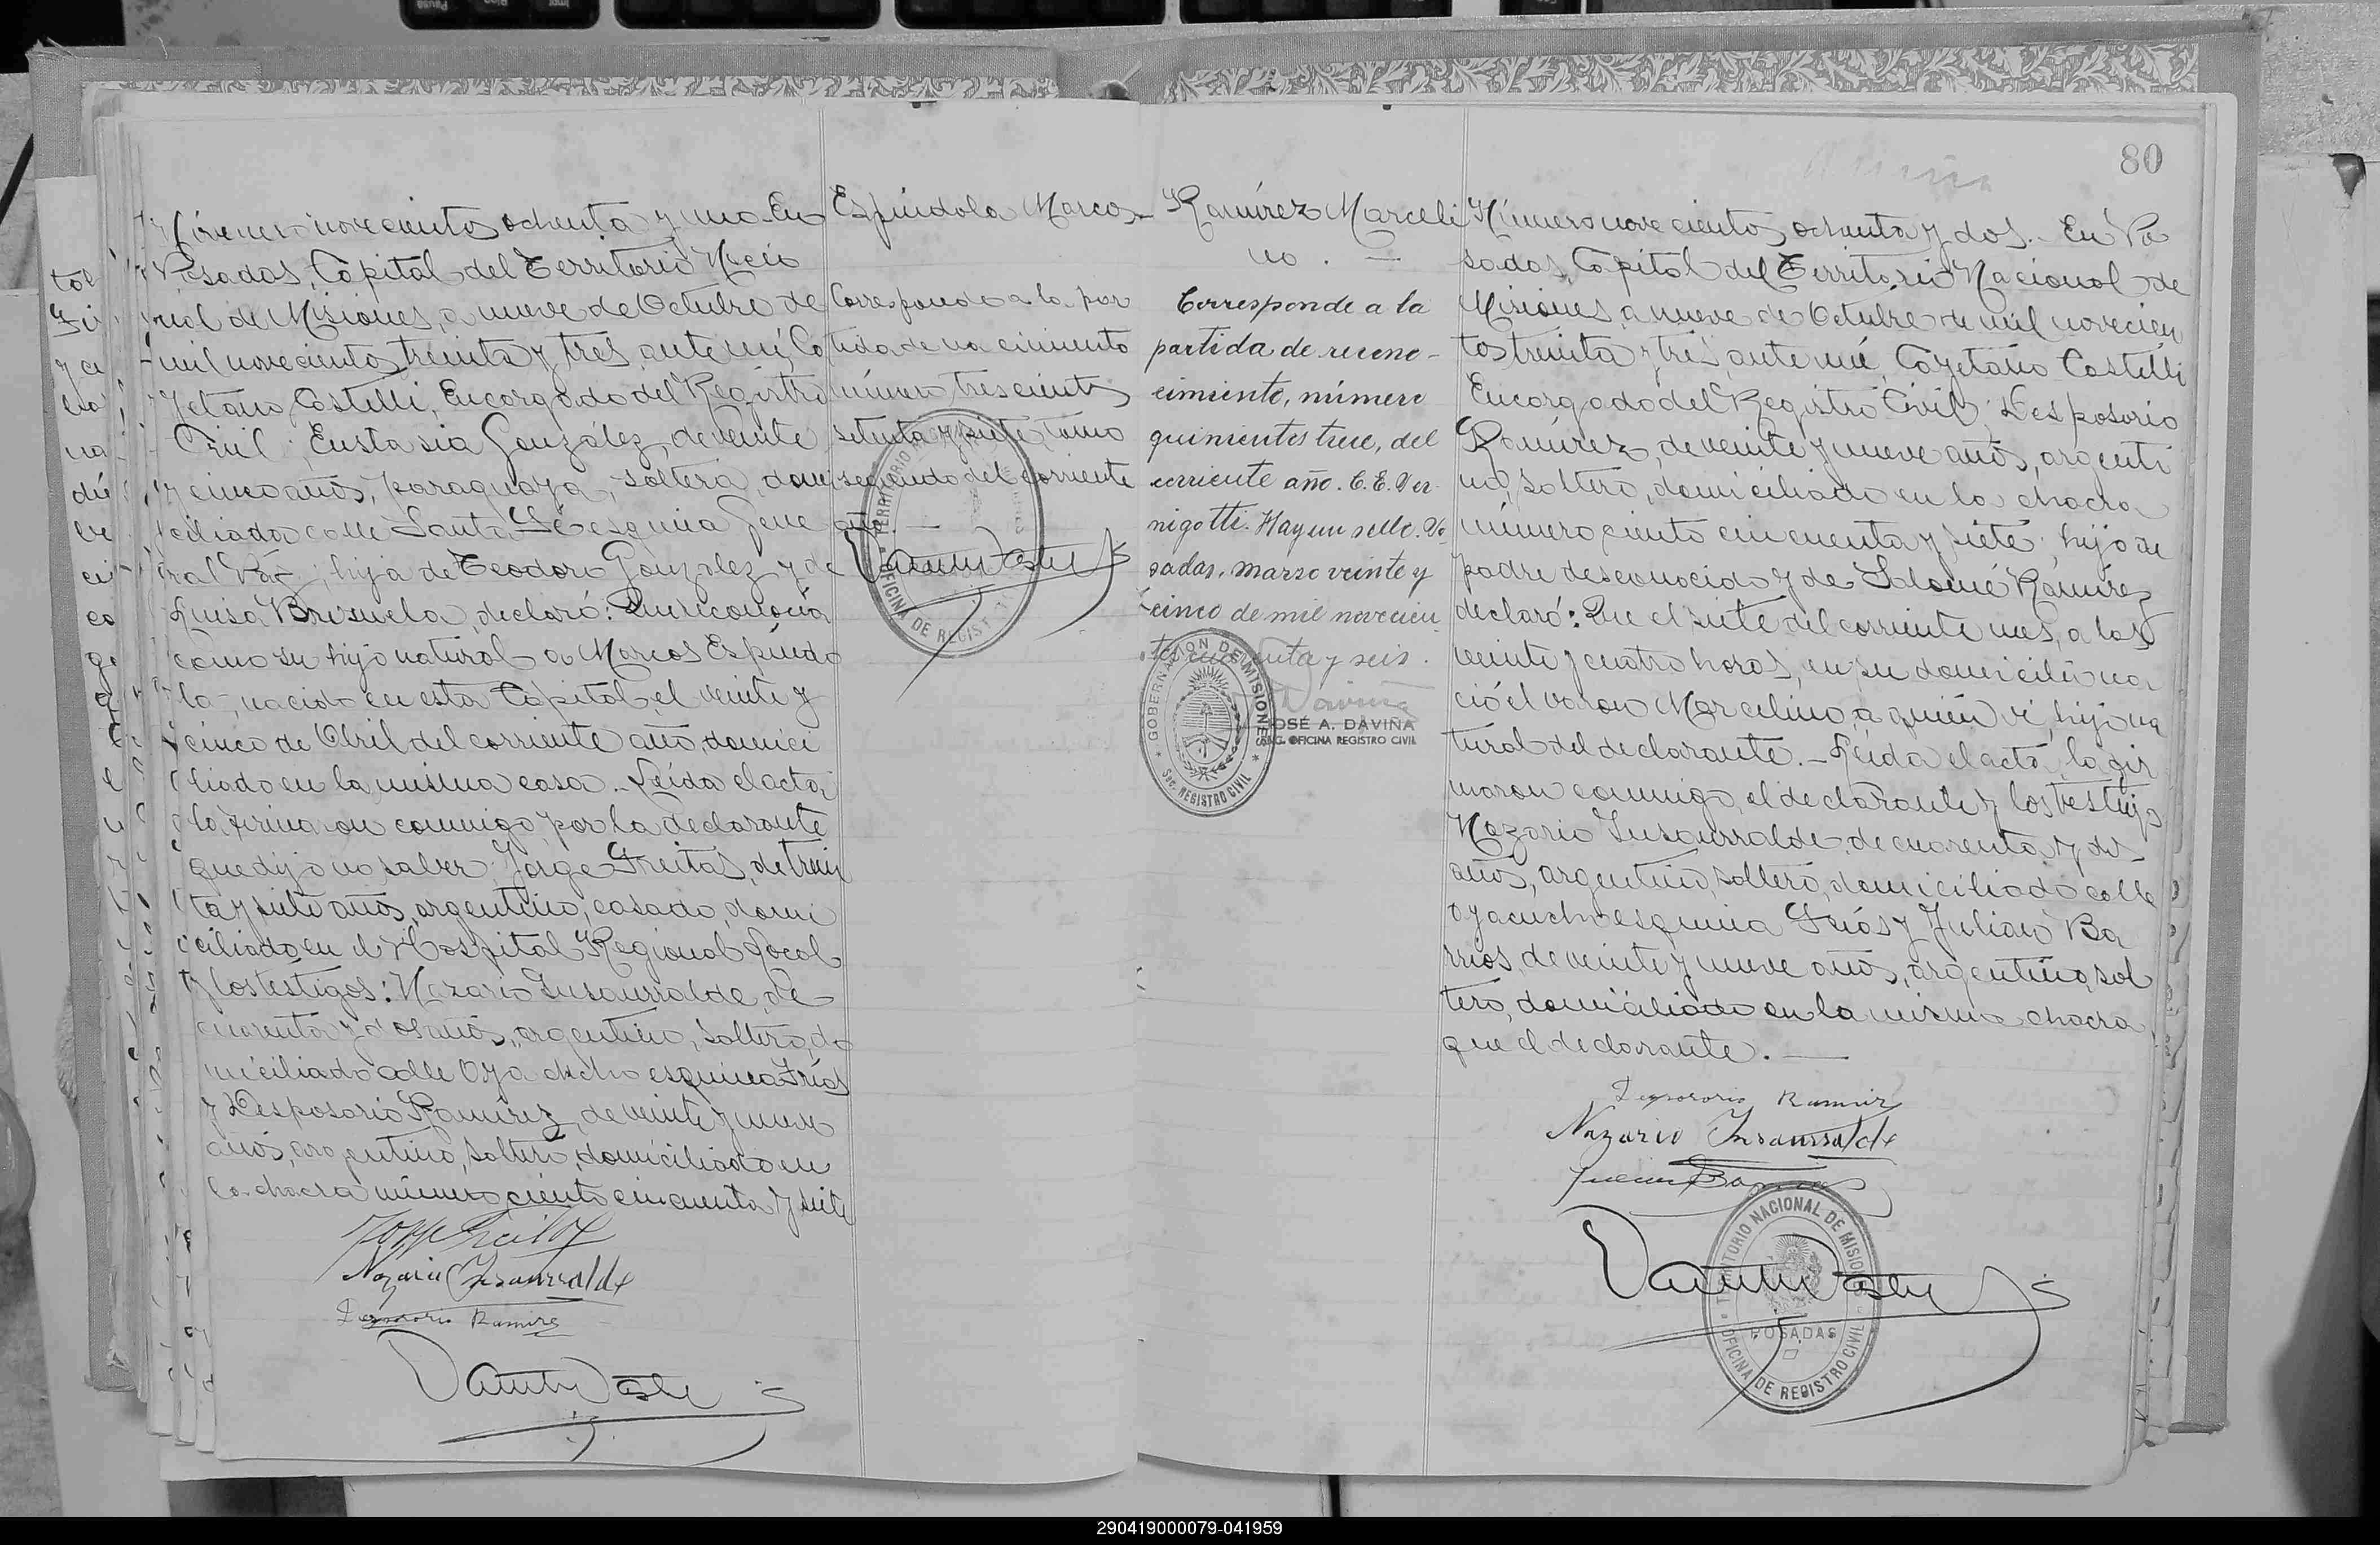 Número novecientos ochenta y uno. En
Posadas, Capital del Territorio Nacio
nal de Misiones, a nueve de Octubre de
mil novecientos treinta y tres, ante mí, Ca
yetano Castelli, Encargado del Registro
Civil, Eustasia González, de veinte
y cinco años, paraguaya, soltera, domi
ciliada calle Santa Fé esquina Gene
ral Paz, hija de Teodoro González y de
Luisa Brizuela, declaró: Que reconocía
como su hijo natural a Marcos Espíndo
la, nacido en esta Capital, el veinte y
cinco de Abril del corriente año, domici
liado en la misma casa. Leída el acta,
la firmaron conmigo, por la declarante
que dijo no saber, Jorge Freitas, de trein
ta y siete años, argentino, casado, domi
ciliado en el Hospital Regional local
y los testigos: Nazario Insaurralde, de
cuarenta y dos años, argentino, soltero, do
miciliado calle Ayacucho esquina Frías
y Desposorio Ramírez, de veinte y nueve
años, argentino, soltero, domiciliado en
la chacra número ciento cincuenta y siete
Nazario Insaurralde
Desposorio Ramirez
Espíndola Marcos
Corresponde a la par
tida de nacimiento
número trescientos
setenta y siete, tomo
segundo del corriente
año.
OFICINA DE REGIST
Ramírez Marceli
no. —
Corresponde a la
partida de recono-
cimiento, número
quinientos trece, del
corriente año. C. E. Ver
nigotti. Hay un sello. Po
sadas, marzo veinte y
cinco de mil novecien
tos cincuenta y seis.
GOBERNACION DE MISIONES
Sec. REGISTRO CIVIL
JOSÉ A. DAVIÑA
ENC. OFICINA REGISTRO CIVIL
80
Número novecientos ochenta y dos. En Po
sadas, Capital del Territorio Nacional de
Misiones, a nueve de Octubre de mil novecien
tos treinta y tres, ante mí, Cayetano Castelli
Encargado del Registro Civil, Desposorio
Ramírez, de veinte y nueve años, argenti
no, soltero, domiciliado en la chacra
número ciento cincuenta y siete, hijo de
padre desconocido y de Salomé Ramírez
declaró: Que el siete del corriente mes, a las
veinte y cuatro horas, en su domicilio na
ció el varon Marcelino, a quién ví, hijo na
tural del declarante. — Leída el acta, la fir
maron conmigo, el declarante y los testigos
Nazario Insaurralde, de cuarenta y dos
años, argentino, soltero, domiciliado calle
Ayacucho esquina Frías y Julian Ba
rrios, de veinte y nueve años, argentino, sol
tero, domiciliado en la misma chacra
que el declarante. —
Desposorio Ramirez
Nazario Insaurralde
TERRITORIO NACIONAL DE MISIONES
POSADAS
OFICINA DE REGISTRO CIVIL
290419000079-041959